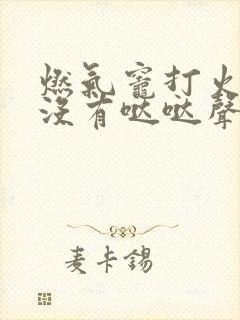 燃氣竈打火
沒有哒哒聲
麦卡錫